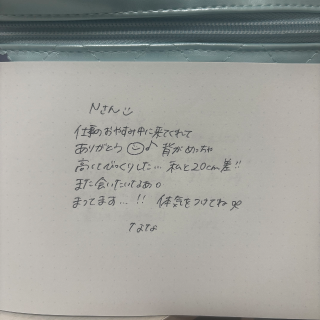 Nさん
仕事のおやすみ中に来てくれて
ありがとう♪ 背がめっちゃ
高くてびっくりした… 私と20cm差!!
また会いたいなあ。
まってます…!! 体気をつけてね